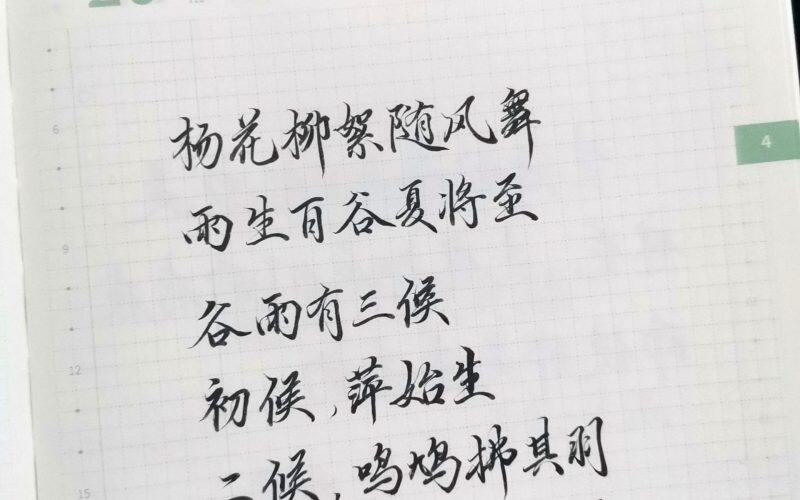 杨花柳絮随风舞
雨生百谷夏将至
谷雨有三候
初候,萍始生
二候,鸣鸠拂其羽
4
6
9
12
15